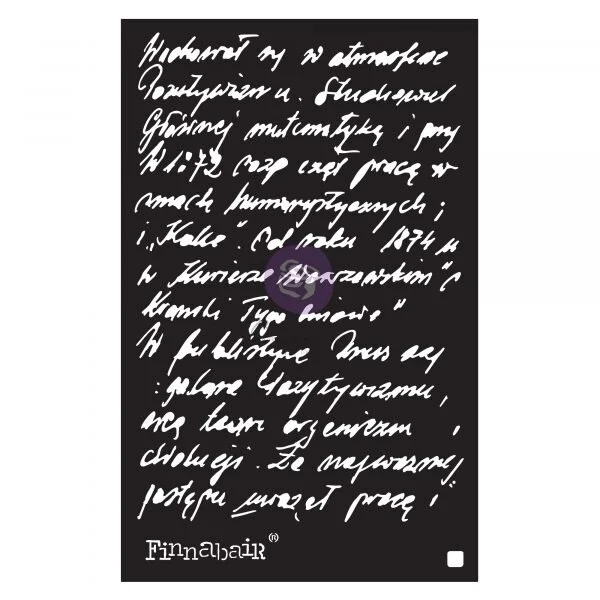 Wychował się w atmosferze
Pozytywizmu. Studiował
Głównej matematykę i przy
W 1872 rozpoczął pracę w
smach humorystycznych;
i „Kolce”. Od roku 1874 u
w Kurierze Warszawskim” c
Kronski Tygodniowe”
W publistyce
: Pozytywizmu,
organizm i
ewolucji. Za najważniej
postępu uważał pracę i”
Finnabair®